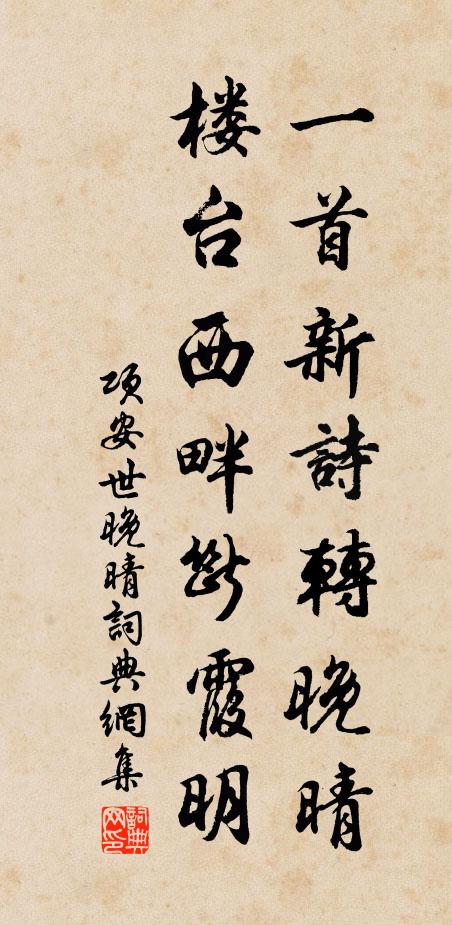 一首新詩轉晚晴
楼台西畔断霞明
项安世晚晴詞典網集
詞典
网印